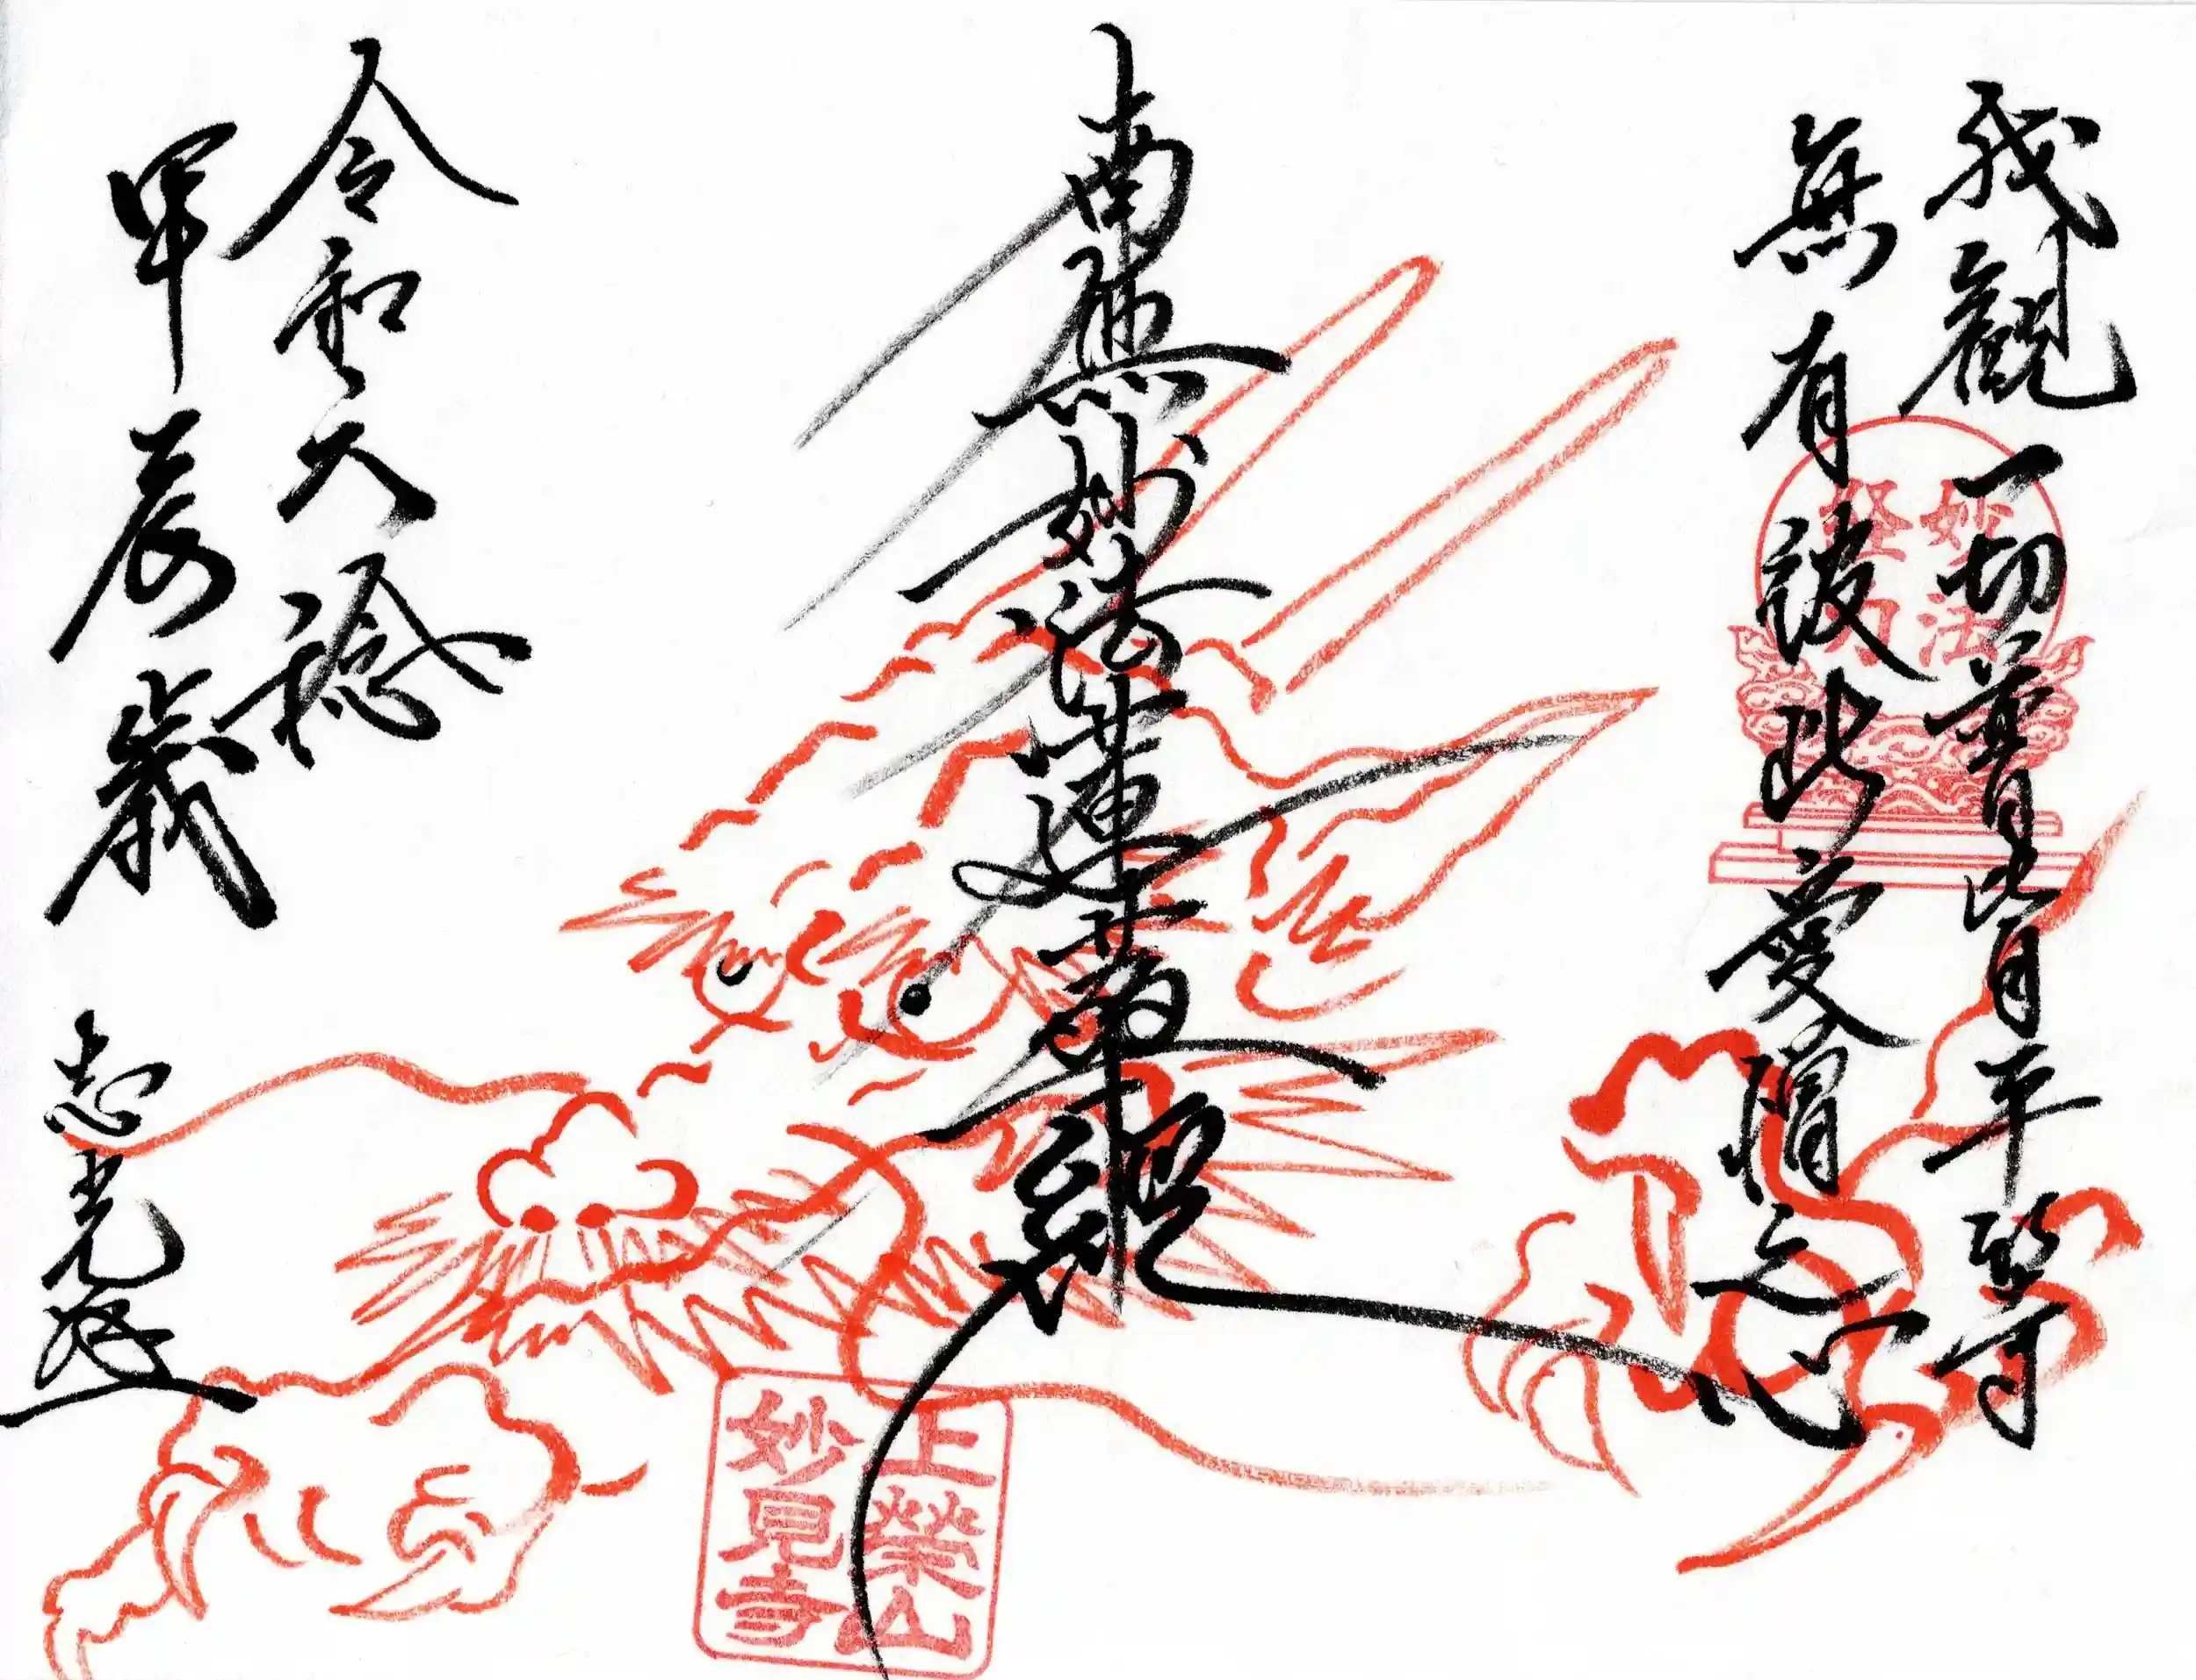 我觀一切普皆平等
無有彼此愛憎之心
妙法
経力
南無妙法蓮華經
上榮山
妙見寺
令和六稔
甲辰歳
志光